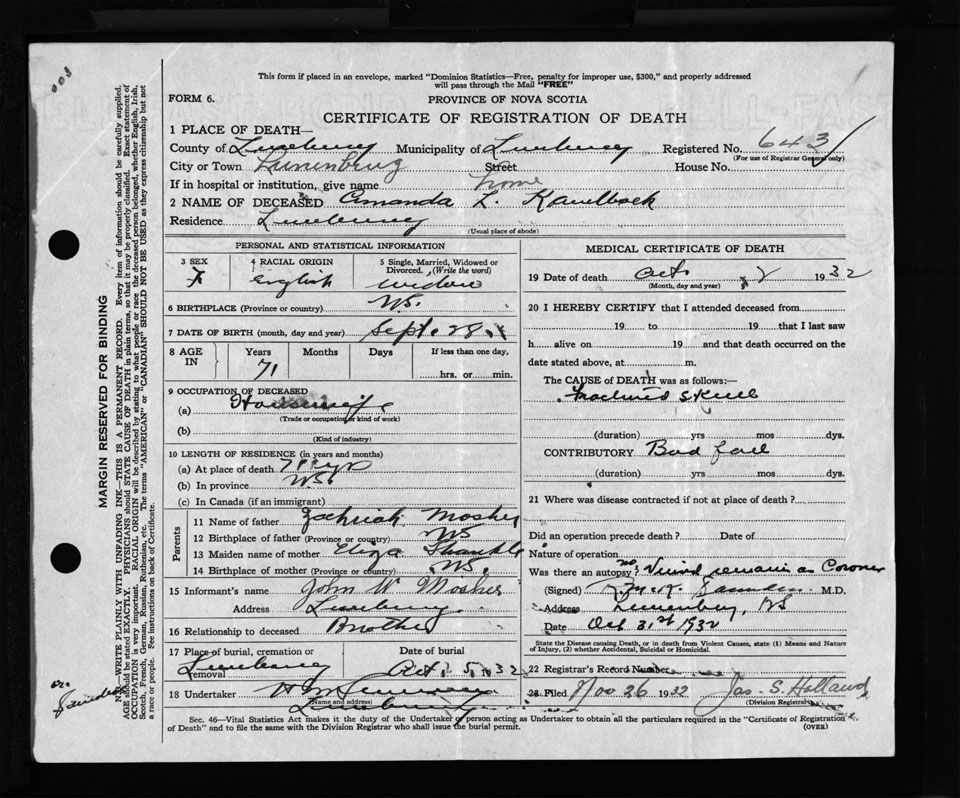 This form if placed in an envelope, marked "Dominion Statistics—Free, penalty for improper use, $300," and properly addressed
will pass through the Mail "FREE"
FORM 6.
PROVINCE OF NOVA SCOTIA
CERTIFICATE OF REGISTRATION OF DEATH
1 PLACE OF DEATH—
County of Lunenburg Municipality of Lunenburg Registered No. 643
(For use of Registrar General only)
City or Town Lunenburg Street House No.
If in hospital or institution, give name home
2 NAME OF DECEASED Amanda L. Kaulback
Residence Lunenburg
(Usual place of abode)
PERSONAL AND STATISTICAL INFORMATION
3 SEX 4 RACIAL ORIGIN 5 Single, Married, Widowed or Divorced. (Write the word)
F English widow
6 BIRTHPLACE (Province or country) N.S.
7 DATE OF BIRTH (month, day and year) Sept. 28
8 AGE IN Years Months Days If less than one day,
71 hrs. or min.
9 OCCUPATION OF DECEASED
(a) Housewife
(Trade or occupation or kind of work)
(b)
(Kind of industry)
10 LENGTH OF RESIDENCE (in years and months)
(a) At place of death 71 yrs
(b) In province N.S.
(c) In Canada (if an immigrant)
Parents
11 Name of father Mosher
12 Birthplace of father (Province or country) N.S.
13 Maiden name of mother Eliza
14 Birthplace of mother (Province or country) N.S.
15 Informant's name John W. Mosher
Address Lunenburg
16 Relationship to deceased Brother
17 Place of burial, cremation or removal Date of burial
Lunenburg Oct. 5. 32
18 Undertaker
(Name and address)
Lunenburg
MEDICAL CERTIFICATE OF DEATH
19 Date of death Oct 2 1932
(Month, day and year)
20 I HEREBY CERTIFY that I attended deceased from
19 to 19 that I last saw
h alive on 19 and that death occurred on the
date stated above, at m.
The CAUSE of DEATH was as follows:—
Fractured skull
(duration) yrs mos dys.
CONTRIBUTORY Bad fall
(duration) yrs mos dys.
21 Where was disease contracted if not at place of death?
Did an operation precede death? Date of
Nature of operation
Was there an autopsy? no Viewed remains as Coroner
(Signed) M.D.
Address Lunenburg, NS
Date Oct 31st 1932
State the Disease causing Death, or in death from Violent Causes, state (1) Means and Nature
of Injury, (2) whether Accidental, Suicidal or Homicidal.
22 Registrar's Record Number
23 Filed Nov 26 1932 Jas. S. Holland
(Division Registrar)
Sec. 46—Vital Statistics Act makes it the duty of the Undertaker or person acting as Undertaker to obtain all the particulars required in the "Certificate of Registration
of Death" and to file the same with the Division Registrar who shall issue the burial permit.
(OVER)
MARGIN RESERVED FOR BINDING
N.B.—WRITE PLAINLY WITH UNFADING INK—THIS IS A PERMANENT RECORD. Every item of information should be carefully supplied.
AGE should be stated EXACTLY. PHYSICIANS should STATE CAUSE OF DEATH in plain terms, so that it may be properly classified. Exact statement of
OCCUPATION is very important. RACIAL ORIGIN will be described by stating to what people or race the deceased person belonged, whether English, Irish,
Scotch, French, German, Russian, Ruthenian, etc. The terms "AMERICAN" or "CANADIAN" SHOULD NOT BE USED as they express citizenship but not
a race or people. See instructions on back of Certificate.